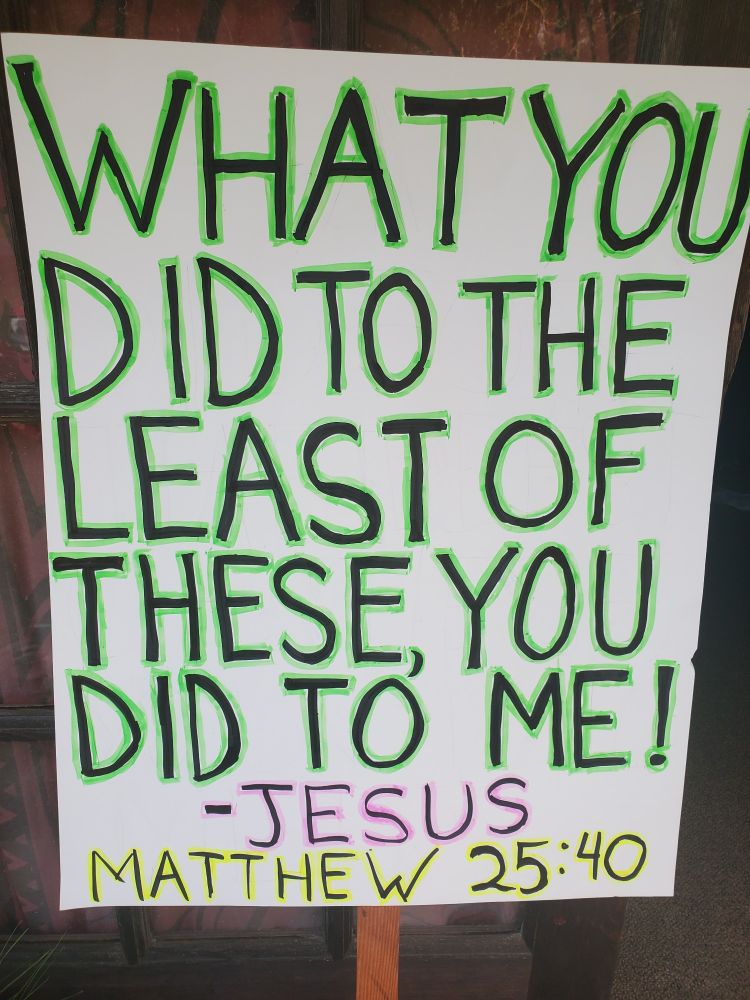 WHAT YOU
DID TO THE
LEAST OF
THESE, YOU
DID TO ME!
-JESUS
MATTHEW 25:40